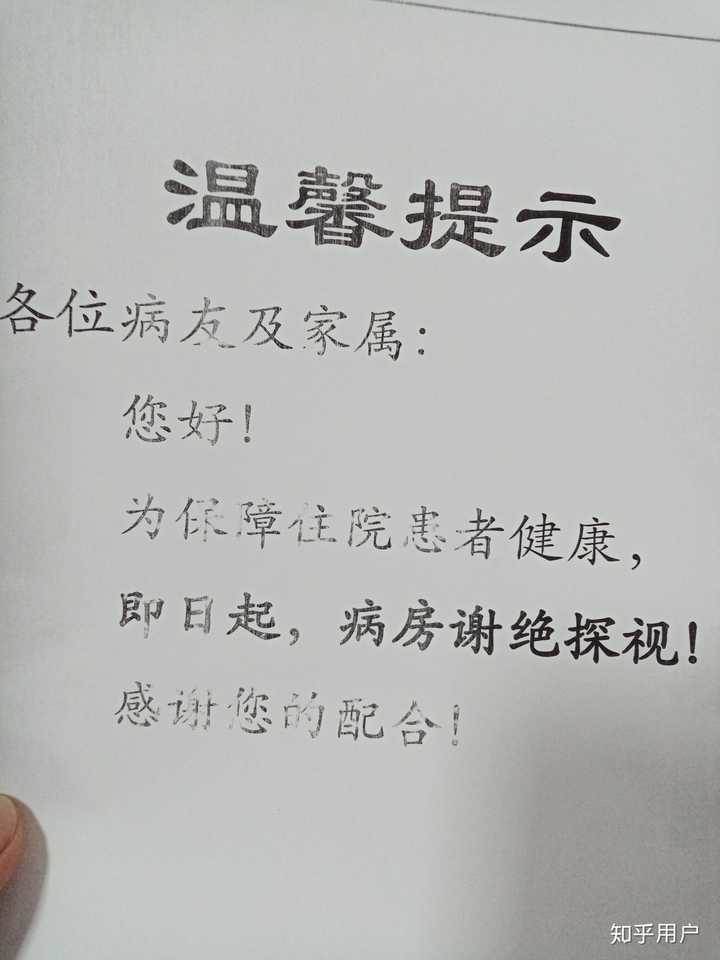 温馨提示
各位病友及家属：
您好！
为保障住院患者健康，
即日起，病房谢绝探视！
感谢您的配合！
知乎用户